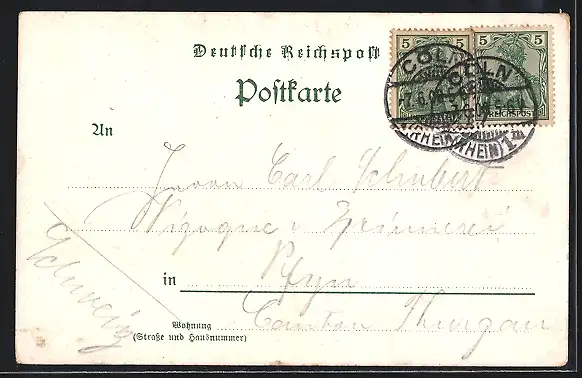 Deutsche Reichspost
Postkarte
5 5 5 5
REICHSPOST
CÖLN
CÖLN
(RHEIN)
(RHEIN) 1
An
Herrn Carl Schubert
Vigogne
in Pfyn
Canton Thurgau
Schweiz
Wohnung
(Straße und Hausnummer)